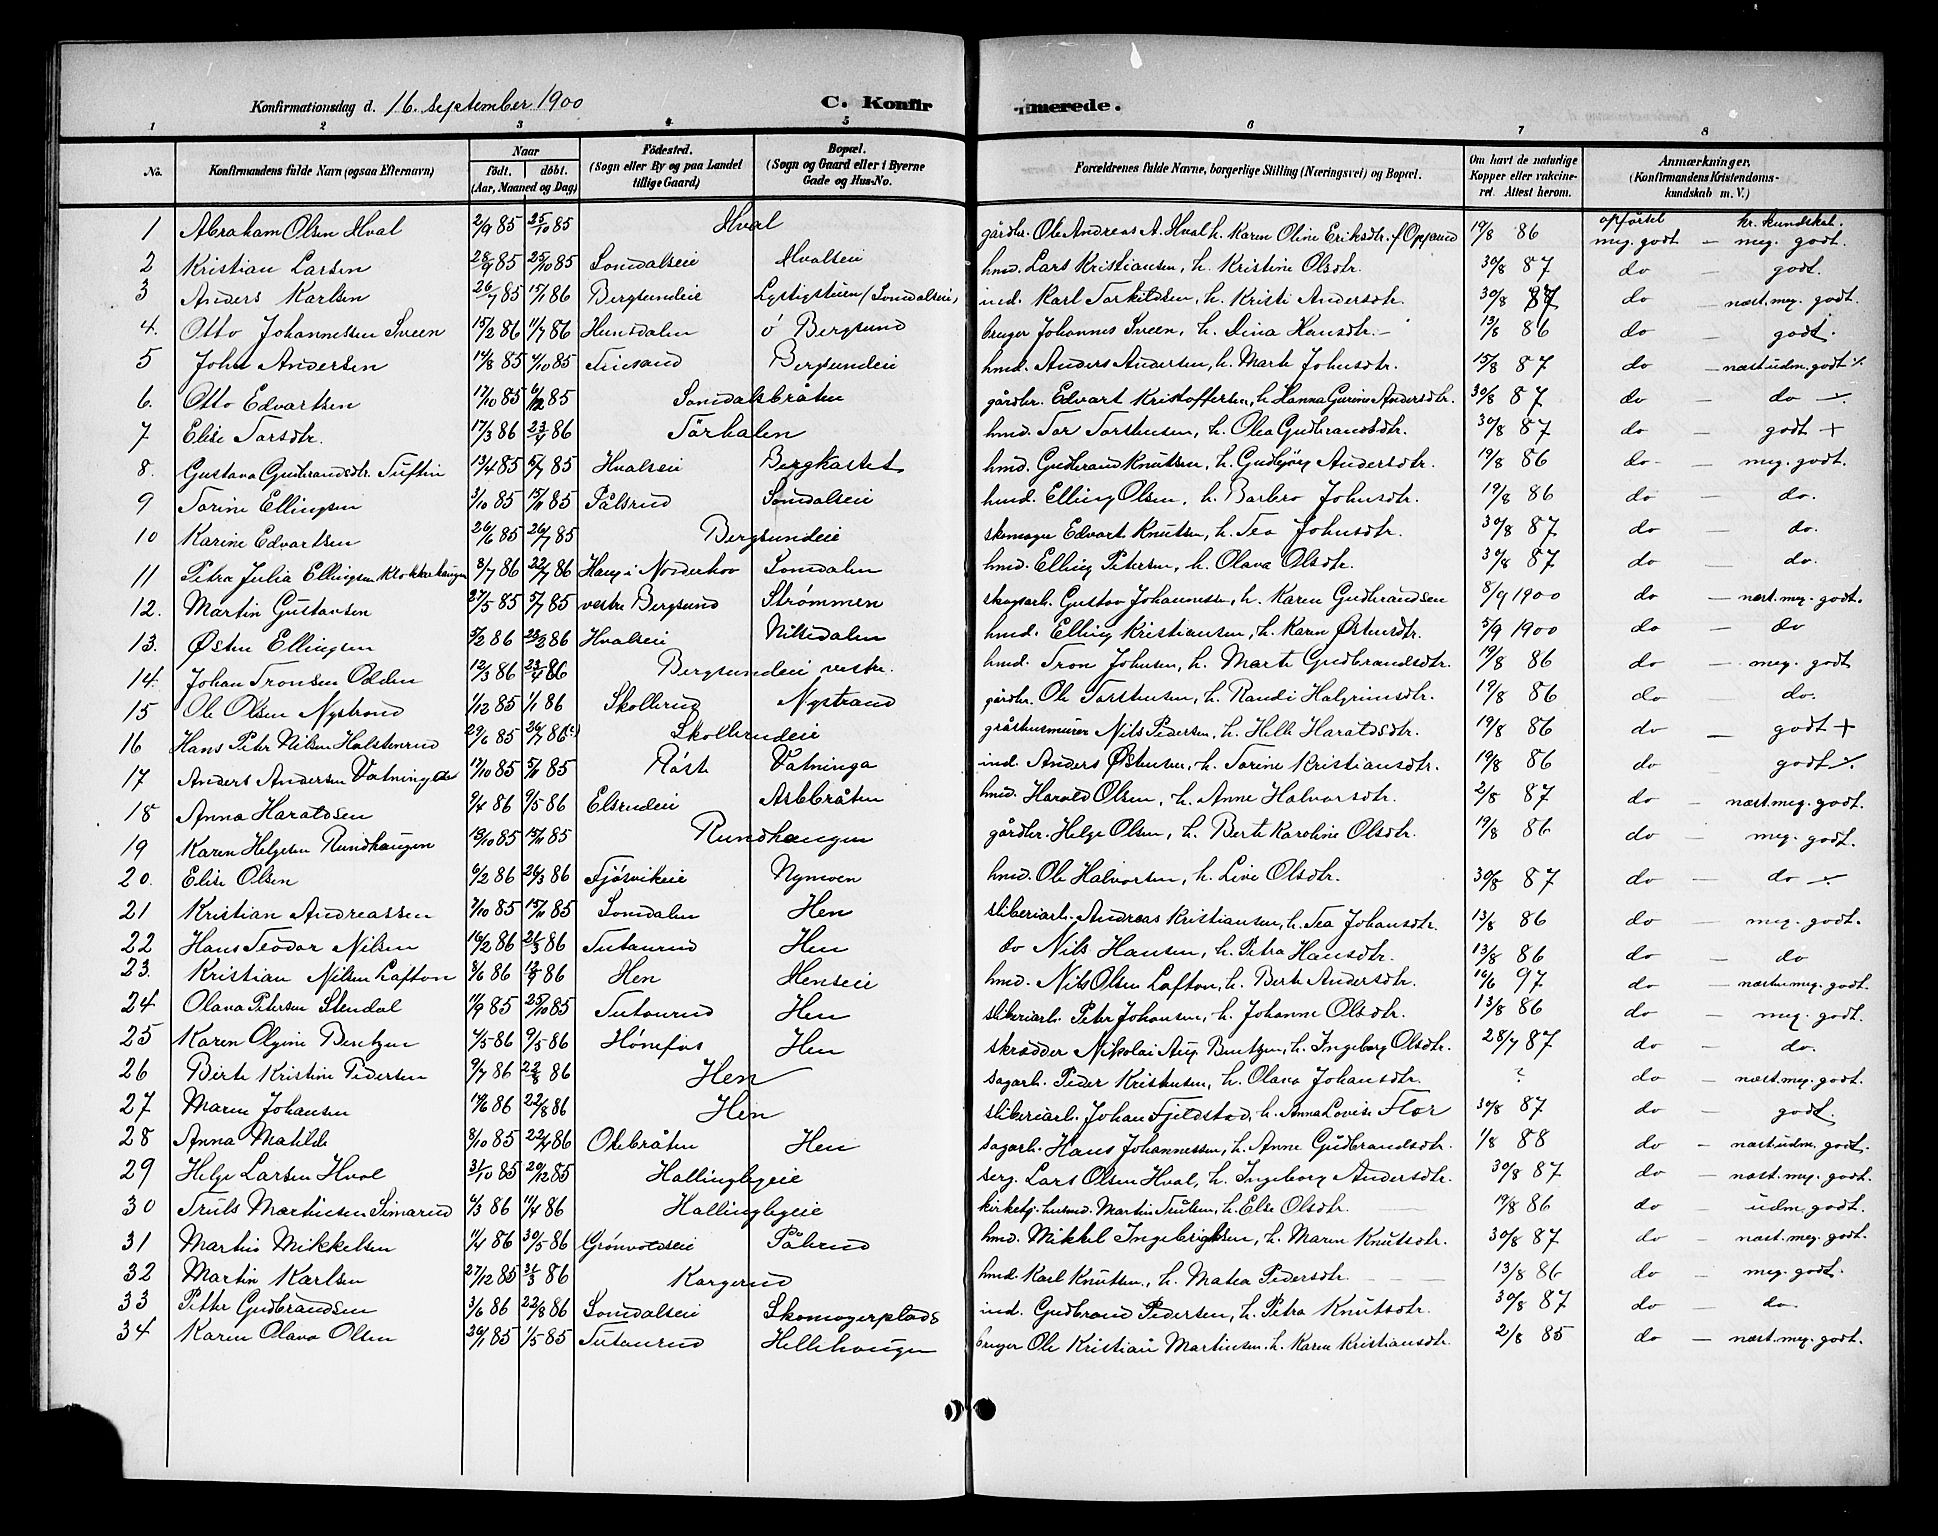 Konfirmationsdag d. 16. September 1900
C. Konfirmerede.
1 2 3 4 5 6 7 8
No. Konfirmandens fulde Navn (ogsaa Efternavn) Naar født. døbt. (Aar, Maaned og Dag) Fødested. (Sogn eller By og paa Landet tillige Gaard) Bopæl. (Sogn og Gaard eller i Byerne Gade og Hus-No. Forældrenes fulde Navne, borgerlige Stilling (Næringsvei) og Bopæl. Om havt de naturlige Kopper eller vakcineret. Attest herom. Anmærkninger, (Konfirmandens Kristendomskundskab m. V.)
opførsel kr. kundskab.
1 Abraham Olsen Hval 2/9 85 25/10 85 Hval gårdbr. Ole Andreas A. Hval h. Karen Oline Eriksdtr. f Opsand 19/8 86 meg. godt — meg. godt.
2 Kristian Larsen 28/9 85 25/10 85 Somdalseie Hvalseie hmd. Lars Kristiansen, h. Kristine Olsdtr. 30/8 87 do godt.
3 Anders Karlsen 26/7 85 17/1 86 Bergsundeie Lystigstuen (Somdalseie) ind. Karl Torkildsen, h. Kristi Andersdtr. 30/8 87 do — næst. meg. godt.
4. Otto Johannessen Sveen 15/2 86 11/7 86 Hensdalen ø Bergsund bruger Johannes Sveen, h. Dina Hansdtr. — 13/8 86 do — godt.
5 John Andersen 14/8 85 4/10 85 Finsand Bergsundeie hmd. Anders Andersen, h. Marte Johnsdtr. 15/8 87 do — næst udm. godt ⁒
6. Otto Edvartsen 17/10 85 6/12 85 Somdalsbråten gårdbr. Edvart Kristoffersen, h. Hanna Gurine Andersdtr. 30/8 87 do — do ⁒
7 Elise Torsdtr. 17/3 86 23/4 86 Tørhalen hmd. Tor Torstensen, h. Olea Gudbrandsdtr. 30/8 87 do — godt +
8. Gustava Gudbrandsdtr. Tuftin 13/4 85 5/7 85 Hvalseie Bergkastet hmd. Gudbrand Knutsen, h. Gudbjørg Andersdtr. 19/8 86 do — meg. godt.
9 Torine Ellingsen 3/10 85 15/11 85 Pålsrud Somdalseie hmd. Elling Olsen, h. Barbro Johnsdtr. 19/8 86 do — do.
10 Karine Edvartsen 26/6 85 26/7 85 Bergsundeie skomager Edvart Knutsen, h. Tea Johnsdtr. 30/8 87 do — do.
11 Petra Julia Ellingsen Klokkerhaugen 3/7 86 22/7 86 Haug i Norderhov Somdalen hmd. Elling Petersen, h. Olava Olsdtr. 30/8 87 do — do.
12. Martin Gustavsen 27/5 85 5/7 85 vestre Bergsund Strømmen skogsarb. Gustav Johannessen, h. Karen Gudbrandsen 8/9 1900 do — næst. meg. godt.
13. Østen Ellingsen 5/2 86 23/2 86 Hvalseie Nilsedalen hmd. Elling Kristiansen, h. Karen Østensdtr. 5/9 1900 do — do
14. Johan Tronsen Odden 12/3 86 23/4 86 Bergsundeie vestre. hmd. Tron Johnsen, h. Marte Gudbrandsdtr. 19/8 86 do — meg. godt
15 Ole Olsen Nystrand 1/12 85 1/1 86 Skollerud Nystrand gårdbr. Ole Torstensen, h. Randi Halgrimsdtr. 19/8 86 do do.
16 Hans Peter Nilsen Halstenrud 29/6 85 26/7 86(?) Skollerudeie gråstensmurer Nils Pedersen, h. Helle Haraldsdtr. 19/8 86 do — godt +
17 Anders Andersen Vatninga 17/10 85 5/11 85 Røst Vatninga ind. Anders Østensen, h. Torine Kristiansdtr. 19/8 86 do — godt ⁒
18 Anna Haraldsen 9/4 86 9/5 86 Elsrudeie Aslebråten hmd. Harald Olsen, h. Anne Halvorsdtr. 2/8 87 do — næst. meg. godt.
19 Karen Helgesen Rundhaugen 13/10 85 15/11 85 Rundhaugen gårdbr. Helge Olsen, h. Berte Karoline Olsdtr. 19/8 86 do — meg. godt.
20. Elise Olsen 6/2 86 26/3 86 Fjøsvikeie Nymoen hmd. Ole Halvorsen, h. Live Olsdtr. 30/8 87 do — do ⁒
21 Kristian Andreassen 2/10 85 15/11 85 Somdalen Hen sliberiarb. Andreas Kristiansen, h. Tea Johansdtr. 13/8 86 do — meg. godt.
22 Hans Teodor Nilsen 16/2 86 21/3 86 Tutanrud Hen do Nils Hansen, h. Petra Hansdtr. 13/8 86 do — do
23. Kristian Nilsen Lafton 8/6 86 12/9 86 Hen Henseie hmd. Nils Olsen Lafton, h. Berte Andersdtr. 16/6 97 do — næsten meg. godt.
24 Olava Petersen Stendal 11/9 85 25/10 85 Tutanrud Hen sliberiarb. Peter Johansen, h. Johanne Olsdtr. 13/8 86 do — meg. godt.
25 Karen Olgine Bentzen 4/5 86 9/5 86 Hønefos Hen skrædder Nikolai Aug. Bentzen, h. Ingeborg Olsdtr. 28/7 87 do — do.
26 Birte Kristine Pedersen 9/7 86 22/8 86 Hen sagarb. Peder Kristensen, h. Olava Johansdtr. ? do — næst. meg. godt.
27 Maren Johansen 14/6 86 22/8 86 Hen sliberiarb. Johan Fjeldstad, h. Anna Lovise Flor 30/8 87 do — godt.
28 Anna Matilde 8/10 85 22/4 86 Okebråten Hen sagarb. Hans Johannessen, h. Anne Gudbrandsdtr. 1/8 88 do — næst udm. godt.
29 Helge Larsen Hval 31/10 85 20/12 85 Hallingbyeie serg. Lars Olsen Hval, h. Ingeborg Andersdtr. 30/8 87 do — næst. meg. godt.
30 Truls Martinsen Simarud 4/3 86 11/4 86 Hallingbyeie kirketj. husmd. Martin Trulsen, h. Else Olsdtr. 19/8 86 do — udm. godt.
31 Martin Mikkelsen 11/4 86 30/5 86 Grønvoldseie Pålsrud hmd. Mikkel Ingebrigtsen, h. Maren Knutsdtr. 30/8 87 do — næst. meg. godt.
32 Martin Karlsen 27/12 85 31/3 86 Kargerud hmd. Karl Knutsen, h. Matea Pedersdtr. 13/8 86 do — meg. godt.
33 Petter Gudbrandsen 3/6 86 22/8 86 Somdalseie Skomagerplads ind. Gudbrand Pedersen, h. Petra Knutsdtr. 30/8 87 do do.
34 Karen Olava Olsen 20/1 85 1/5 85 Tutanrud Hellehaugen bruger Ole Kristian Martinsen. h. Karen Kristiansdtr. 2/8 85 do — næst. meg. godt.